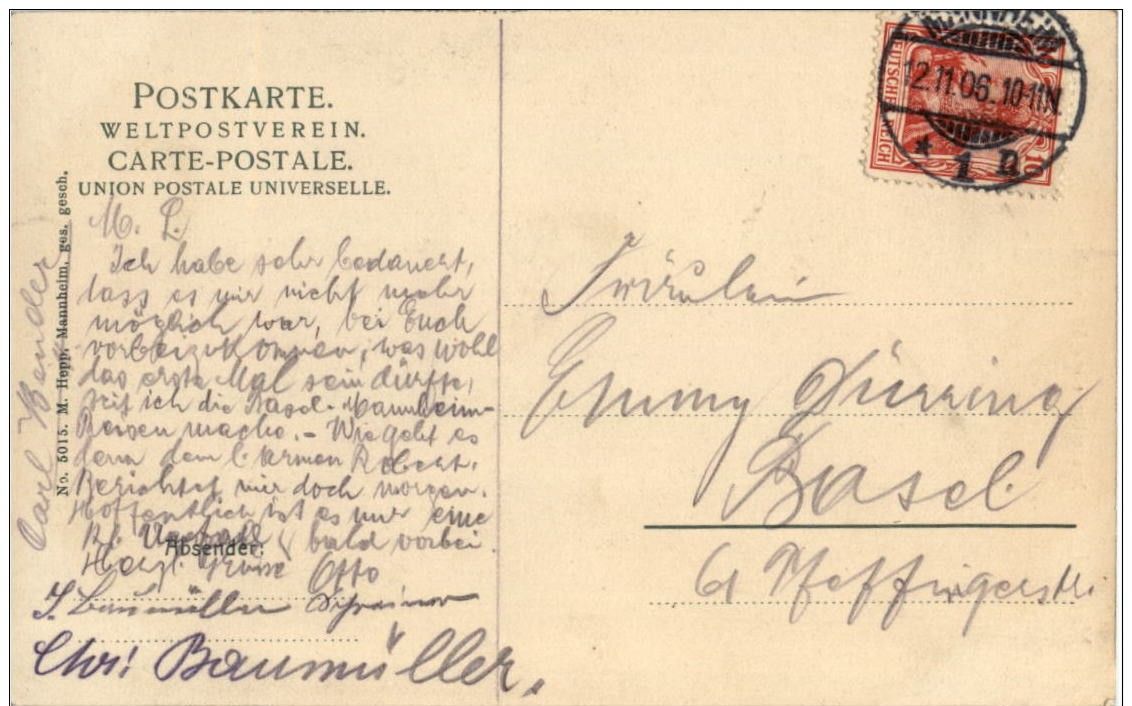 POSTKARTE.
WELTPOSTVEREIN.
CARTE-POSTALE.
UNION POSTALE UNIVERSELLE.
No. 5015. M. Hepp, Mannheim, ges. gesch.
M. L.
Ich habe sehr bedauert,
dass es mir nicht mehr
möglich war, bei Euch
vorbeizukommen, was wohl
das erste Mal sein dürfte,
seit ich die Basel-Mannheim-
Reisen mache. - Wie geht es
denn dem l. armen Robert.
Berichtet mir doch morgen.
Hoffentlich ist es nur eine
kl. bald vorbei.
Herzl. Grüsse Otto
Absender:
J. Baumüller
Chr. Baumüller.
Carl Bender
MANNHEIM
12.11.06. 10-11N.
* 1 n.
DEUTSCHES REICH
10
Fräulein
Emmy Dürring
Basel
61 Pfeffingerstr.